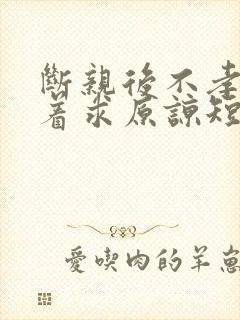 斷親後不
着求原諒短
愛喫肉的羊崽